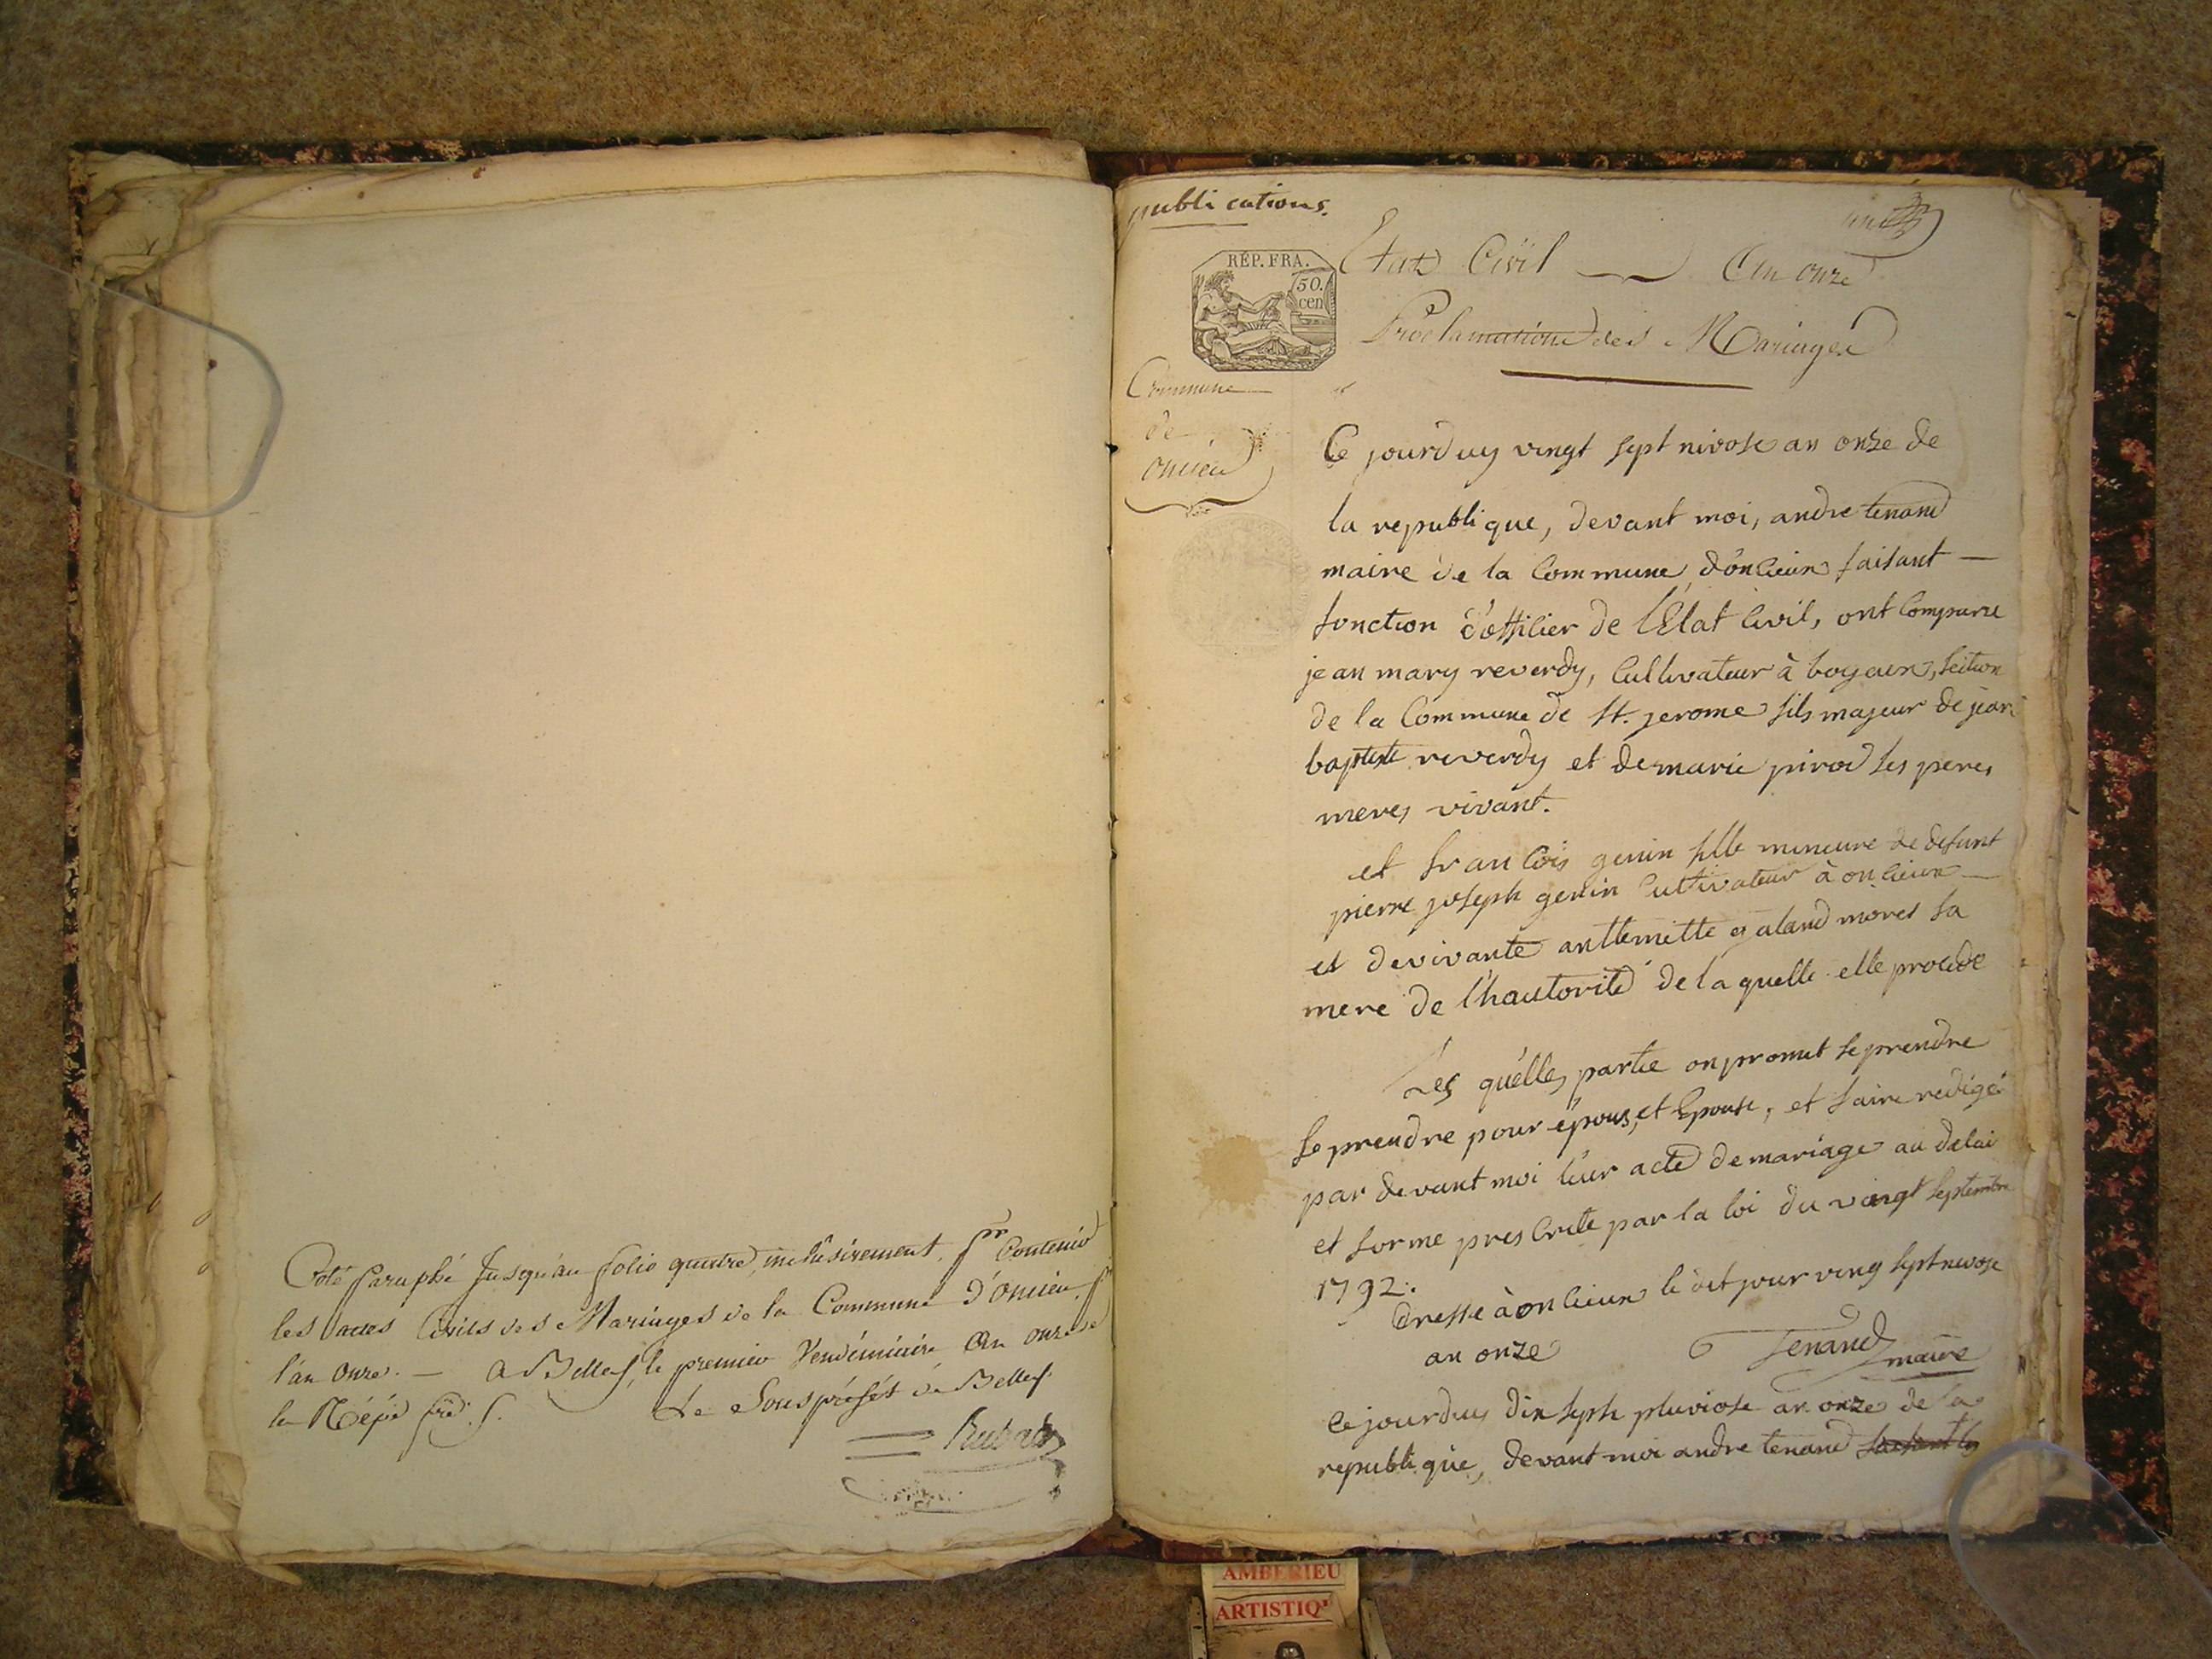 Coté Paraphé Jusqu'au folio quatre, inclusivement, pr Contenir
les actes Civils des Mariages de la Commune d'Oncieu, pr
l'an onze. — A Belley, le premier Vendémiaire An onze de
la Rép. fr.
Le Souspréfét de Belley.
Rubat
publications.
REP. FRA.
50.
cen
Etat Civil An onze
Proclamations des Mariages
Commune
de
Oncieu
Ce jourduy vingt sept nivose an onze de
la republique, devant moi, andre tenand
maire de la Commune d'oncieux faisant —
fonction d'officier de l'Etat Civil, ont Comparu
jean mary reverdy, Cultivateur à boyeux, section
de la Commune de St. jerome fils majeur de jean
baptiste reverdy et de marie pirod ses peres
meres vivant.
et francois genin fille mineure de defunt
pierre joseph genin Cultivateur à oncieux —
et devivante anthemitte galand moret sa
mere de l'hautorité de la quelle elle procede
Les quélles partie on promit se prendre
se prendre pour épous, et Epouse, et faire redigé
par devant moi leur acte de mariage au delai
et forme prescrite par la loi du vingt septembre
1792.
Dresse à oncieux le dit jour ving sept nivose
an onze Tenand
maire
Ce jourduy dix seph pluviose an onze de la
republique, devant moi andre tenand
AMBERIEU
ARTISTIQ